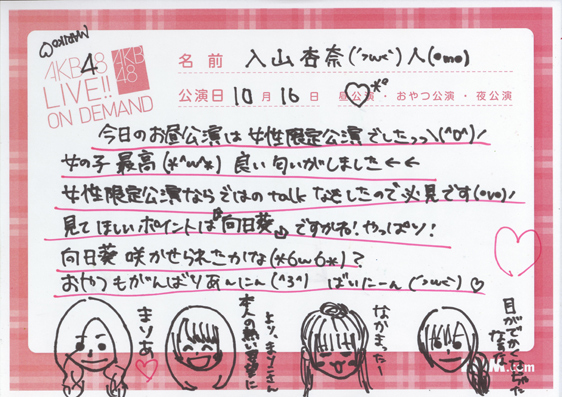 AKB48
LIVE!!
ON DEMAND
AKB
48
名前 入山杏奈('ㅅωヽ`)人(•ω•)
公演日 10月16日 昼公演・おやつ公演・夜公演
今日のお昼公演は女性限定公演でしたっっ\(^o^)/
女の子最高(*^ω^*) 良い匂いがしました←←
女性限定公演ならではのtalkなどしたので必見です(•v•)/
見てほしいポイントは『向日葵』ですかね!やっぱソ!
向日葵咲かせられたかな(*6ω6*)?
おやつもがんばりあ〜にん(^3^) ばいにーん ♡
まりあ
本人の熱い要望に
より、まりこさん
なかまったー
目がでかくなっちゃた
.com